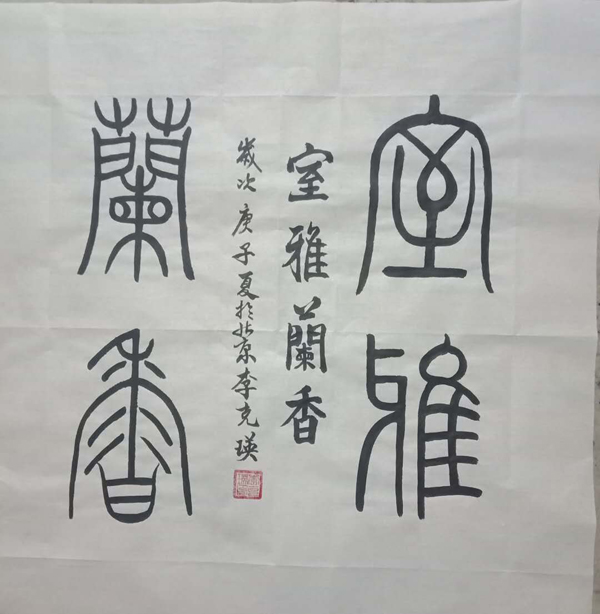 室雅
蘭香
室雅蘭香
歲次庚子夏於北京李克瑛